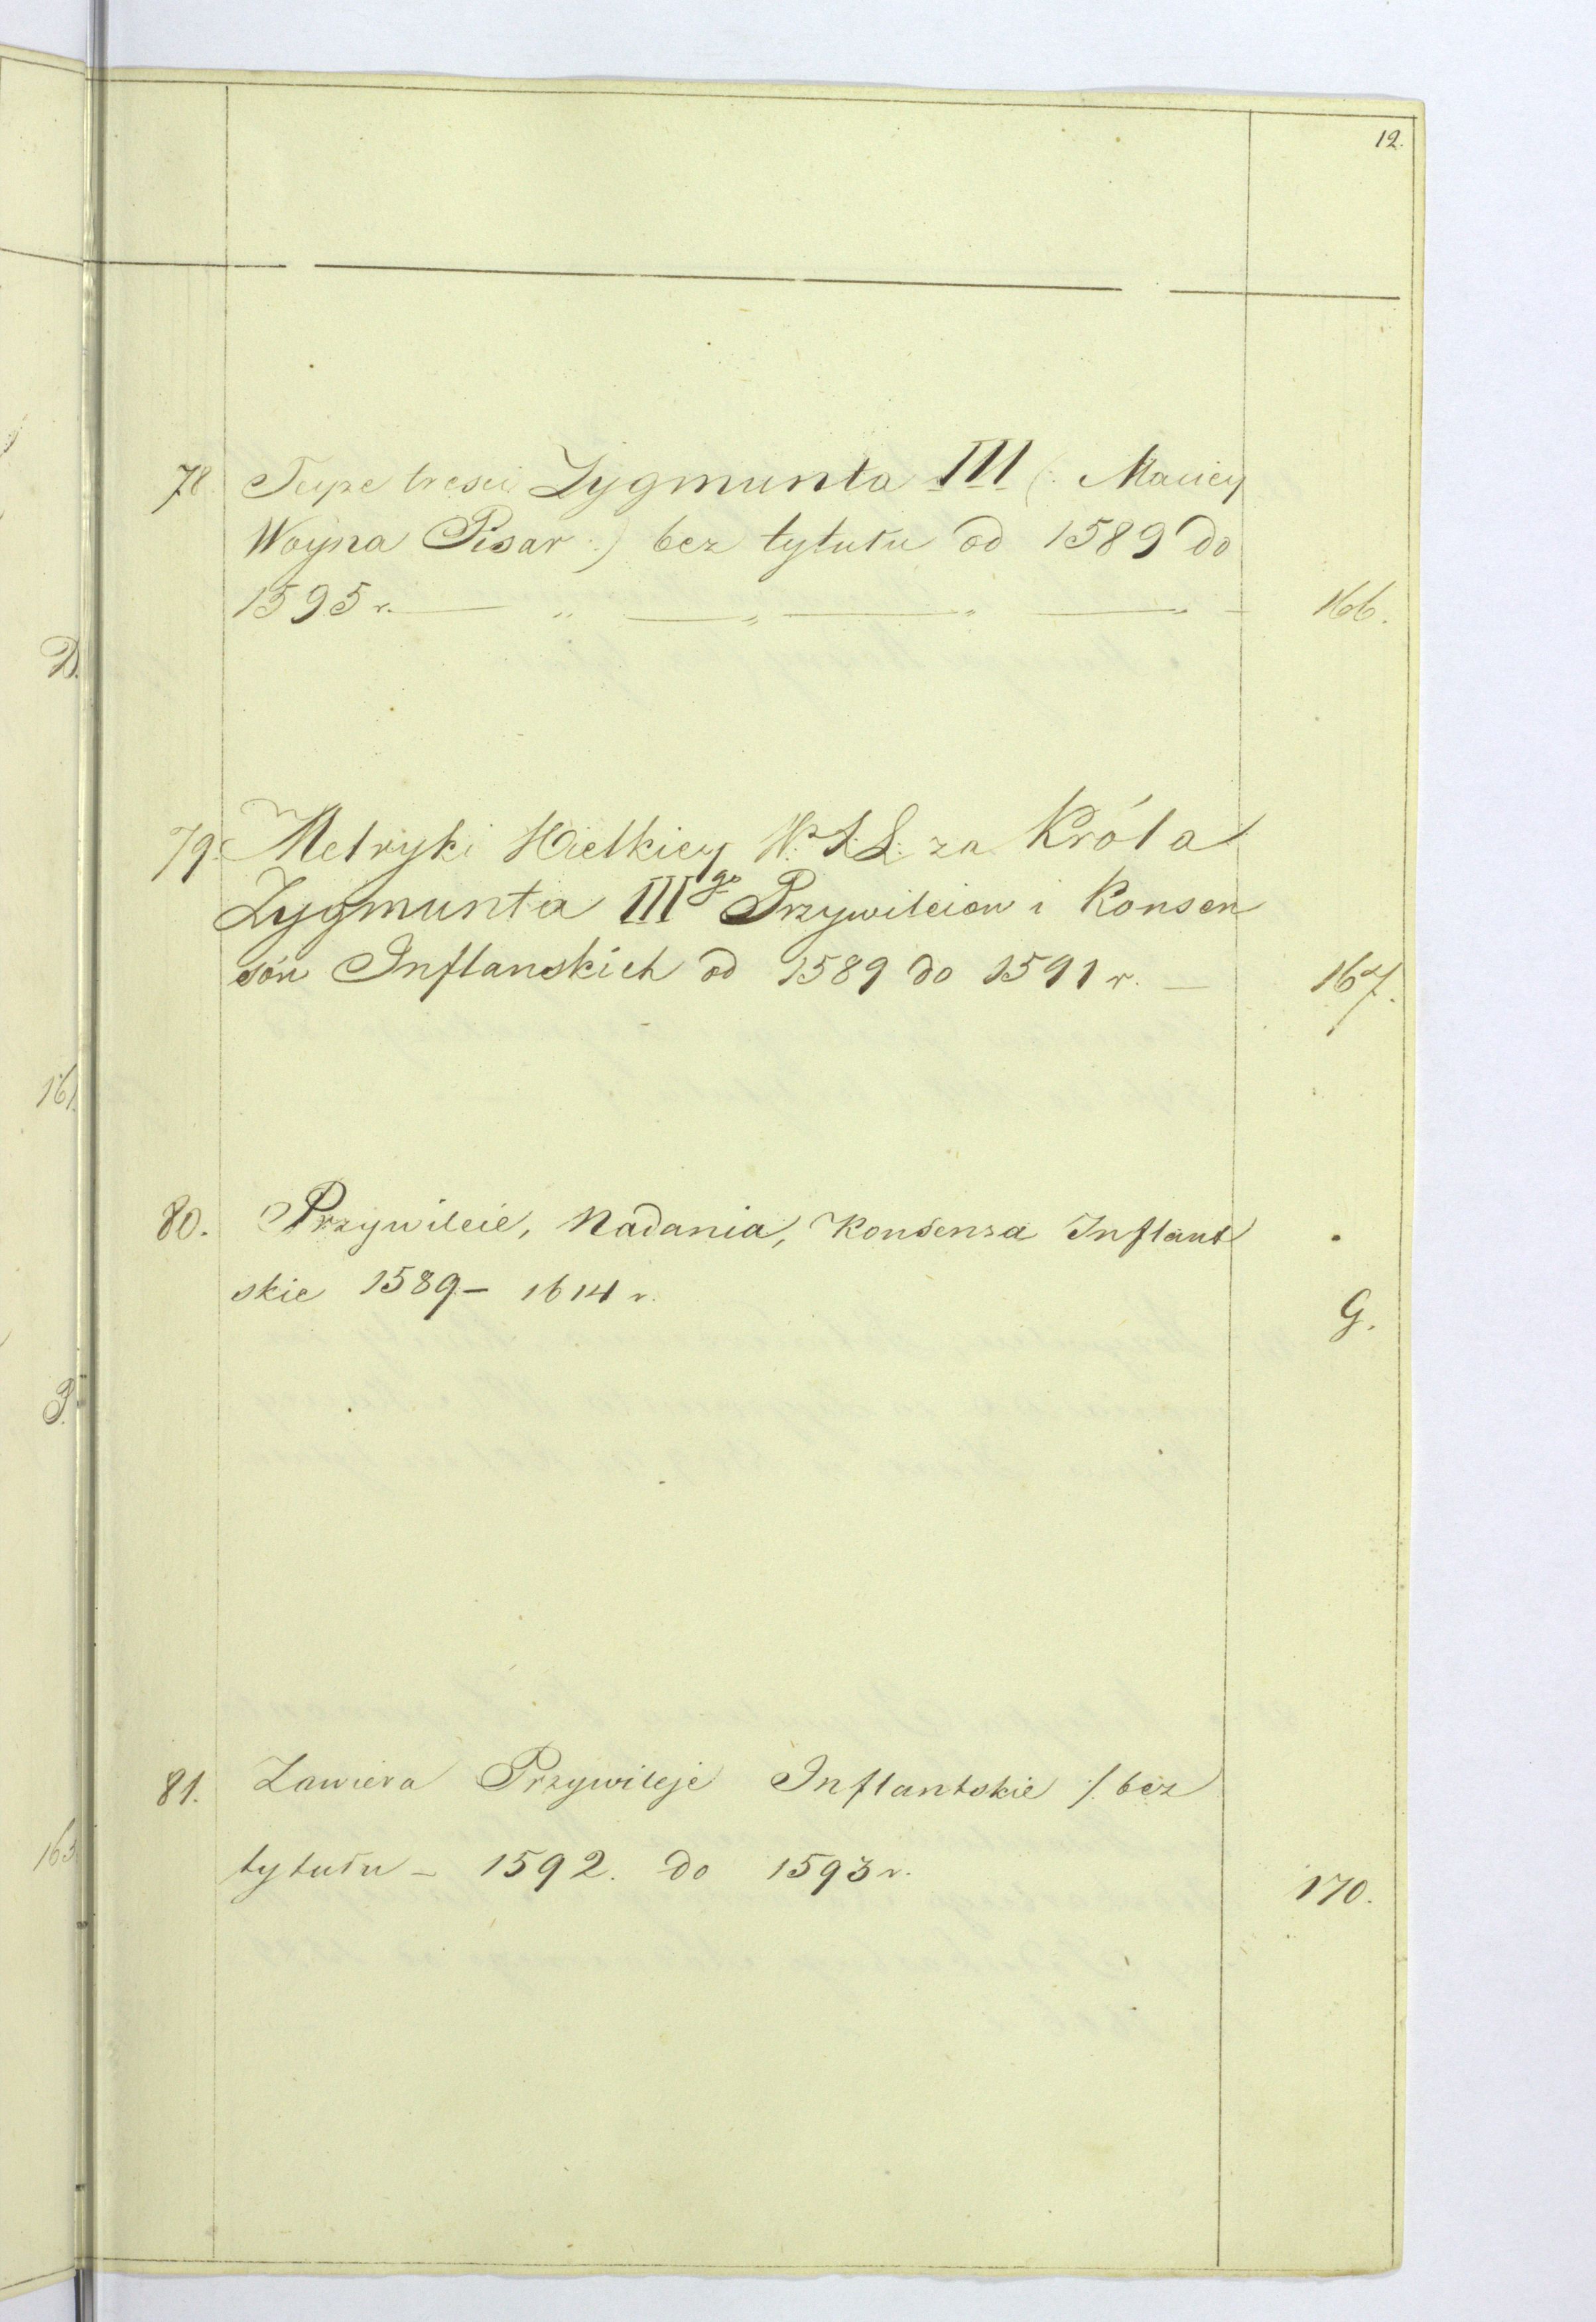 12.
78. Teyże treści Zygmunta III (: Maciey
Woyna Pisar :) bez tytułu od 1589 do
1595 r. — „ — „ — „ — „ — 166.
79. Metryki Wielkiey W. X. L. za Króla
Zygmunta III go Przywileiow i Konsen
sów Inflanskich od 1589 do 1591 r. — 167.
80. Przywileie, Nadania, Konsensa Inflant
skie 1589 – 1614 r. G.
81. Zawiera Przywileje Inflantskie /: bez
tytułu – 1592. do 1593 r. 170.
D.
161.
163